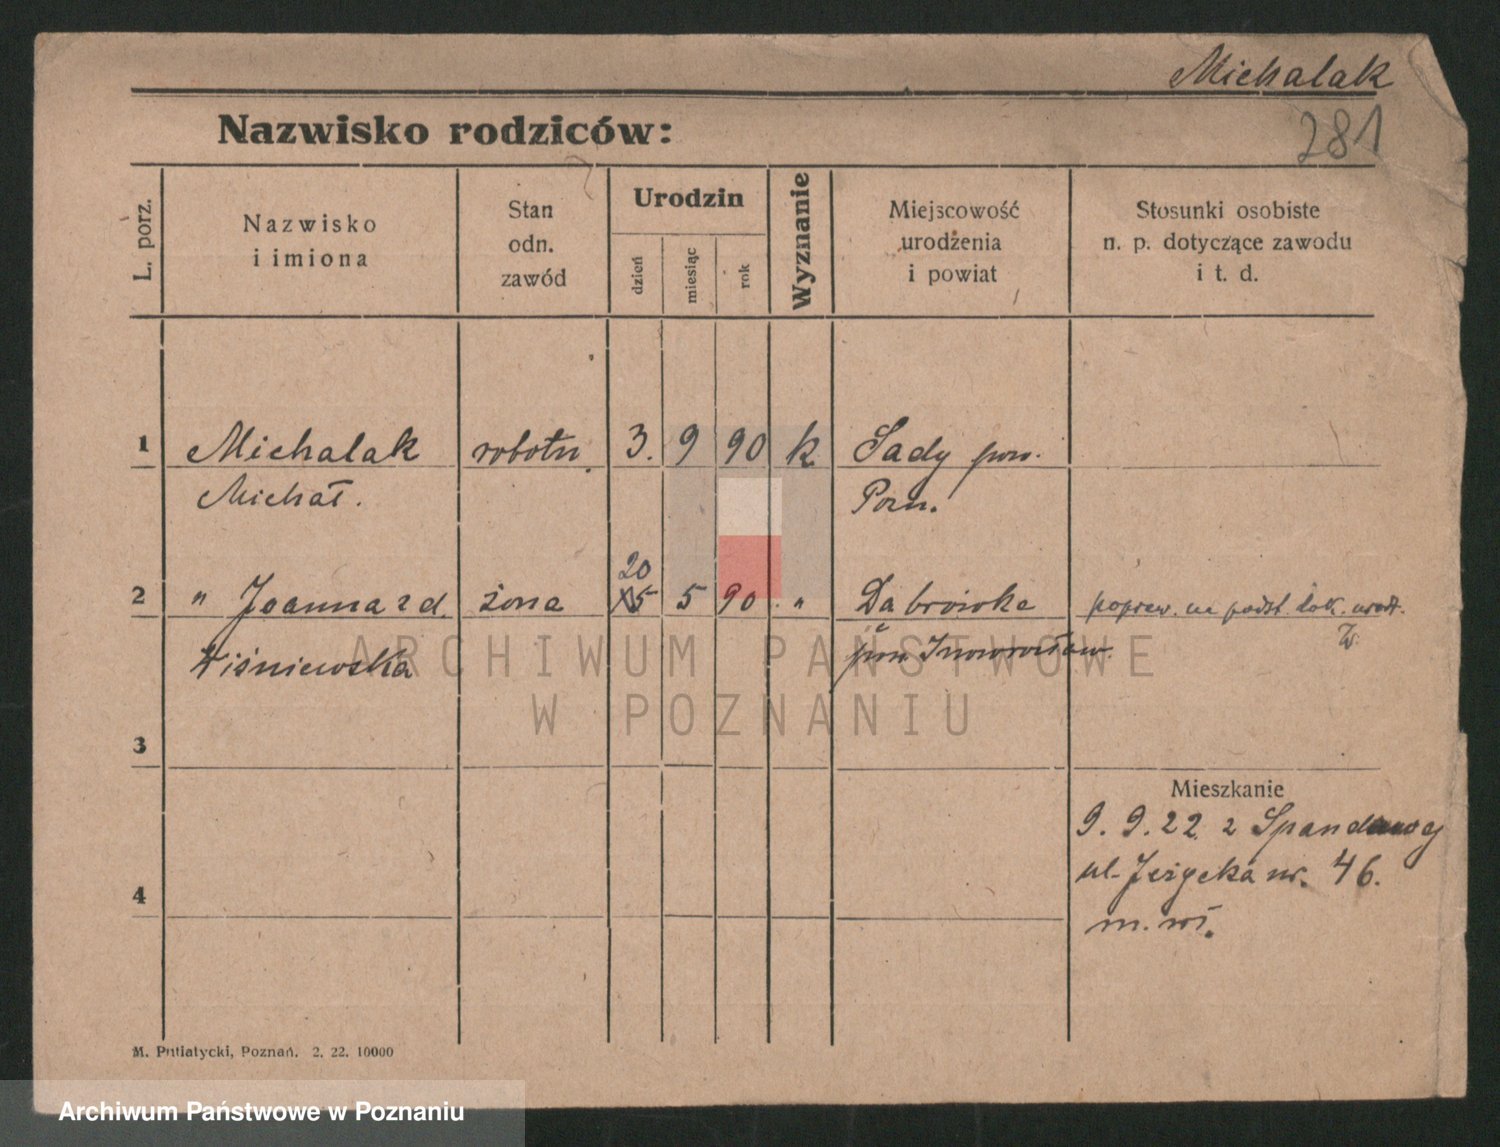 Michalak
281
Nazwisko rodziców:
L. porz.
Nazwisko
i imiona
Stan
odn.
zawód
Urodzin
dzień
miesiąc
rok
Wyznanie
Miejscowość
urodzenia
i powiat
Stosunki osobiste
n. p. dotyczące zawodu
i t. d.
1 Michalak robotn. 3. 9 90 k Sady pow.
Michał. Pozn.
20
2 " Joanna z d. żona 5 90 " Dabrówka popraw. na podst. dok. urodz.
Wiśniewska pow. Inowrocław.
ARCHIWUM PAŃSTWOWE
W POZNANIU
3
Mieszkanie
9. 9. 22 z
4 ul. nr. 46.
M. Putiatycki, Poznań. 2. 22. 10000
Archiwum Państwowe w Poznaniu